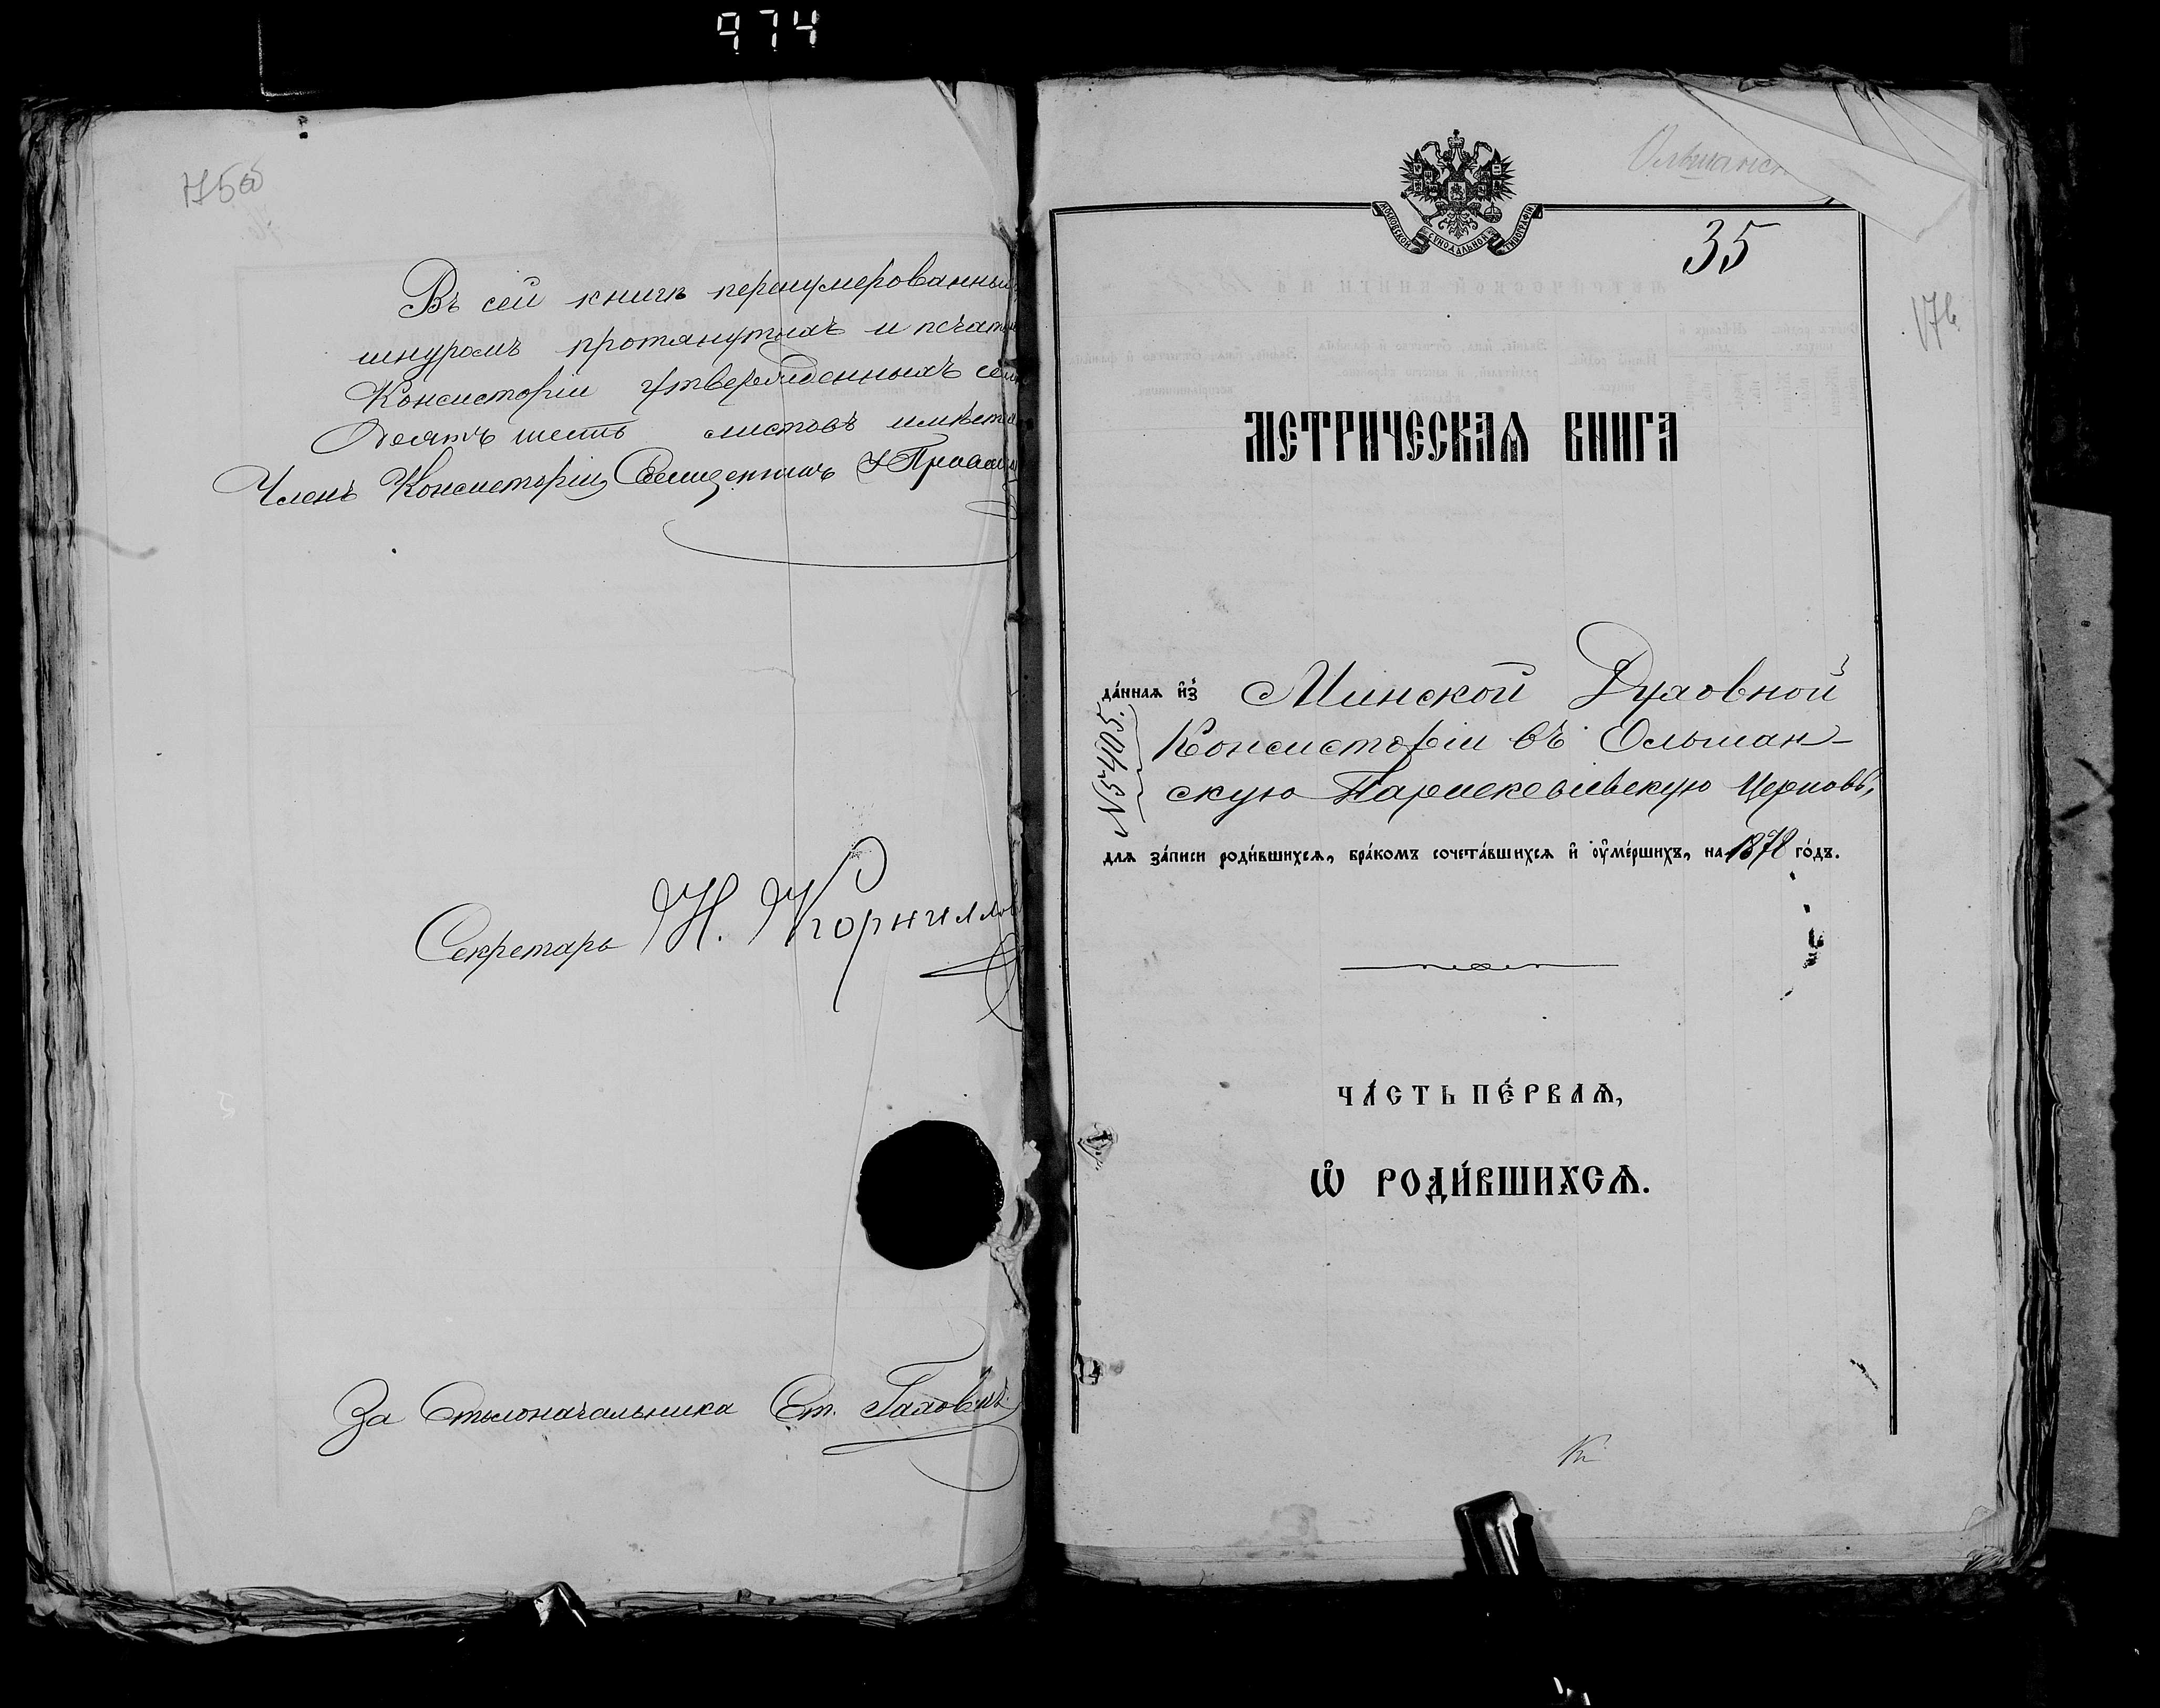 974
Въ сей книгѣ перенумерованныхъ
шнуромъ протянутыхъ и печатью
Консисторіи утвержденныхъ
десять шесть листовъ имѣется
Членъ Консисторіи Священникъ
Секретарь Н. Корнилов
За Столоначальника Ст.
Ольшанск
МОСКОВСКОЙ СѴНОДАЛЬНОЙ ТИПОГРАФІИ
35
176
МЕТРИЧЕСКАѦ КНИГА
да́ннаѧ и҆з̾ Минской Духовной
Консисторіи въ Ольшан-
скую Параскевіевскую Церковь,
№5405.
для за́писи роди́вшихсѧ, бра́комъ сочета́вшихсѧ и҆ ᲂу҆ме́ршихъ, на 1878 го́дъ.
ЧА́СТЬ ПЕ́РВАѦ,
Ѡ҆ РОДИ́ВШИХСѦ.